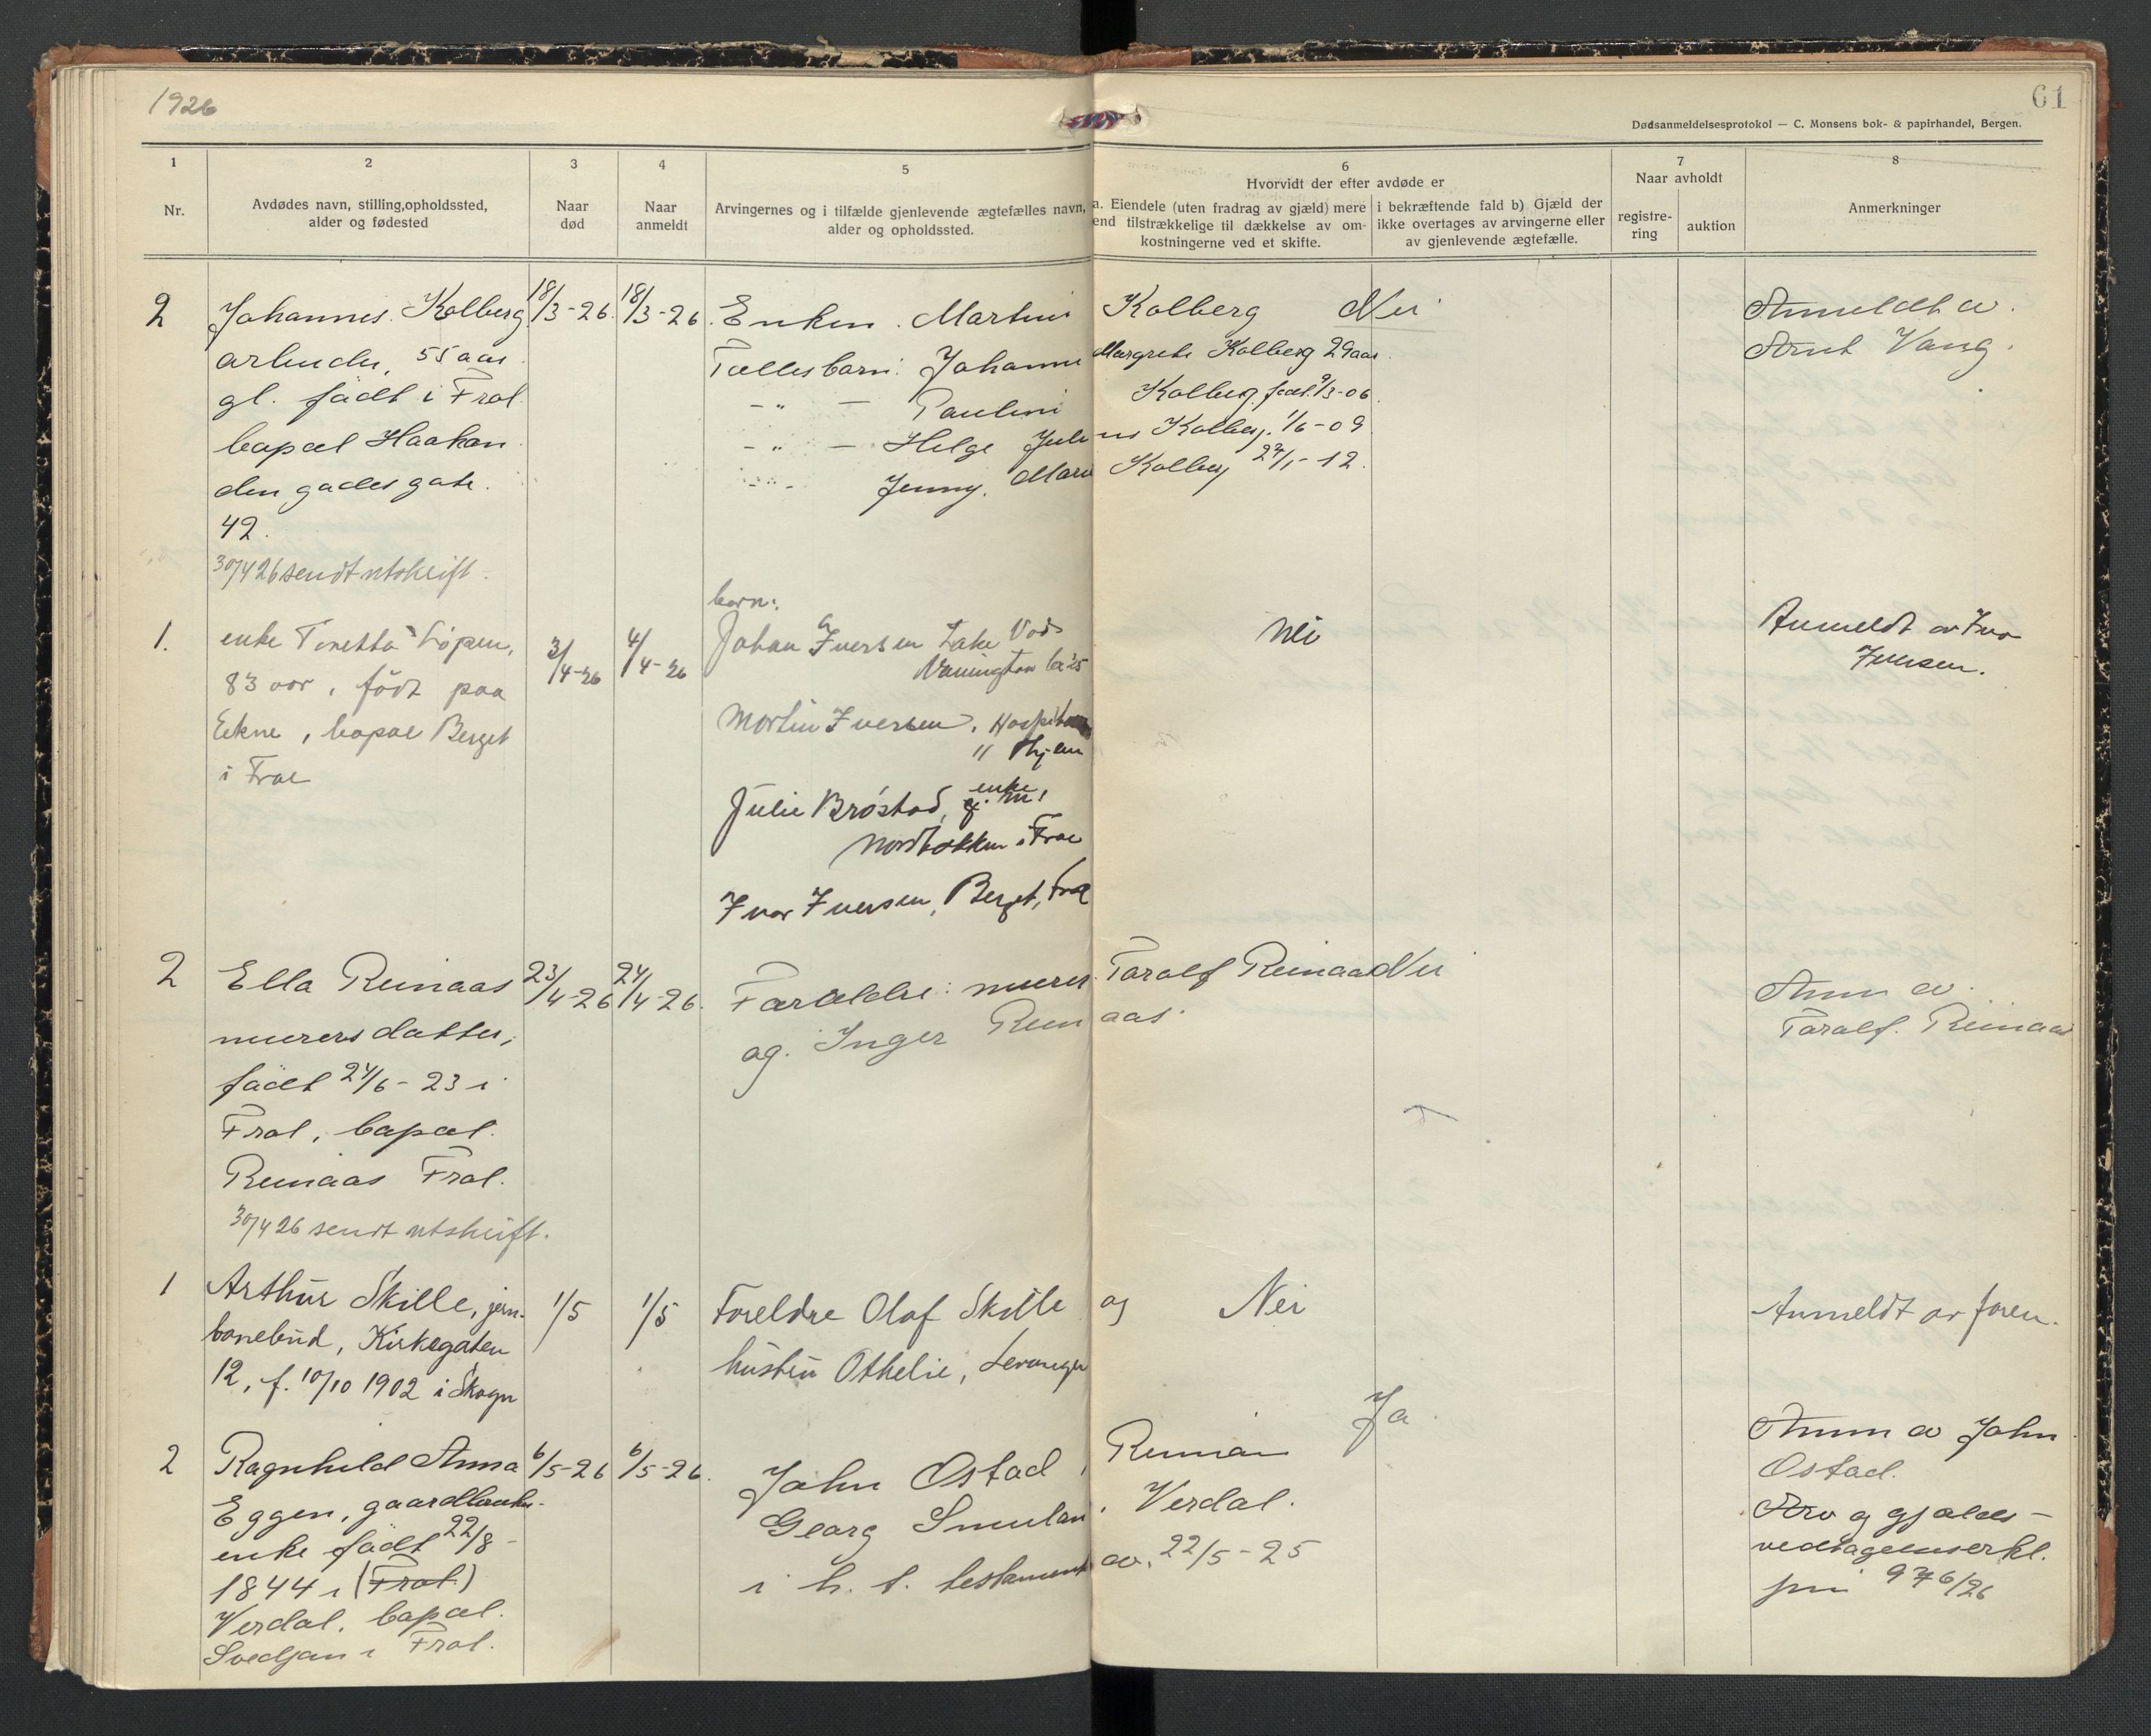 1926
61
Dødsanmeldelsesprotokol — C. Monsens bok- & papirhandel, Bergen.
1
2
3
4
5
6
7
8
Nr.
Avdødes navn, stilling, opholdssted,
alder og fødested
Naar
død
Naar
anmeldt
Arvingernes og i tilfælde gjenlevende ægtefælles navn,
alder og opholdssted.
Hvorvidt der efter avdøde er
a. Eiendele (uten fradrag av gjæld) mere
end tilstrækkelige til dækkelse av om-
kostningerne ved et skifte.
i bekræftende fald b) Gjæld der
ikke overtages av arvingerne eller
av gjenlevende ægtefælle.
Naar avholdt
registre-
ring
auktion
Anmerkninger
2
Johannes Kolberg
arbeider, 55 aar
gl. født i Frol
bopæl Haakon
den godes gate
42.
30/4 26 sendt utskrift.
18/3-26.
18/3-26.
Enken Martini Kolberg
Fællesbarn: Johanne Margrete Kolberg 29 aar.
-"- Paulini Kolberg født 9/3-06.
-"- Helge Julius Kolberg 1/6-09
-"- Jenny Marie Kolberg 24/1-12.
Nei
Anmeldt av
Arnt Vang.
1.
enke Loretta Lopen,
83 aar, født paa
Ekne, bopæl Berget
i Frol
3/4-26
4/4-26
born:
Johan Iversen Lake
Martin Iversen,
" Hjem
Julie Brøstad, enke
Nordbakken i Frol
Ivar Iversen, Berget, Frol
Nei
Anmeldt av Ivar
Iversen.
2
Ella Reinaas
murers datter,
født 24/6-23 i
Frol, bopæl
Reinaas Frol.
30/4 26 sendt utskrift.
23/4-26
24/4-26.
Forældre: murer Toralf Reinaas
og Inger Reinaas.
Nei
Anm av
Toralf Reinaas
1
Arthur Skille, jern-
banebud, Kirkegaten
12, f. 10/10 1902 i Skogn
1/5
1/5
Foreldre Olaf Skille og
hustru Othelie, Levanger
Nei
Anmeldt av faren.
2
Ragnhild Anna
Eggen, gaardbruker-
enke født 22/8-
1844 i (Frol)
Verdal, bopæl
Svedjan i Frol.
6/5-26
6/5-26.
John Ostad,
Georg Smulan, Verdal.
i h. t. testament av 22/5-25
Ja
Anm av John
Ostad.
Arv og gjælds-
vedtagelseserkl.